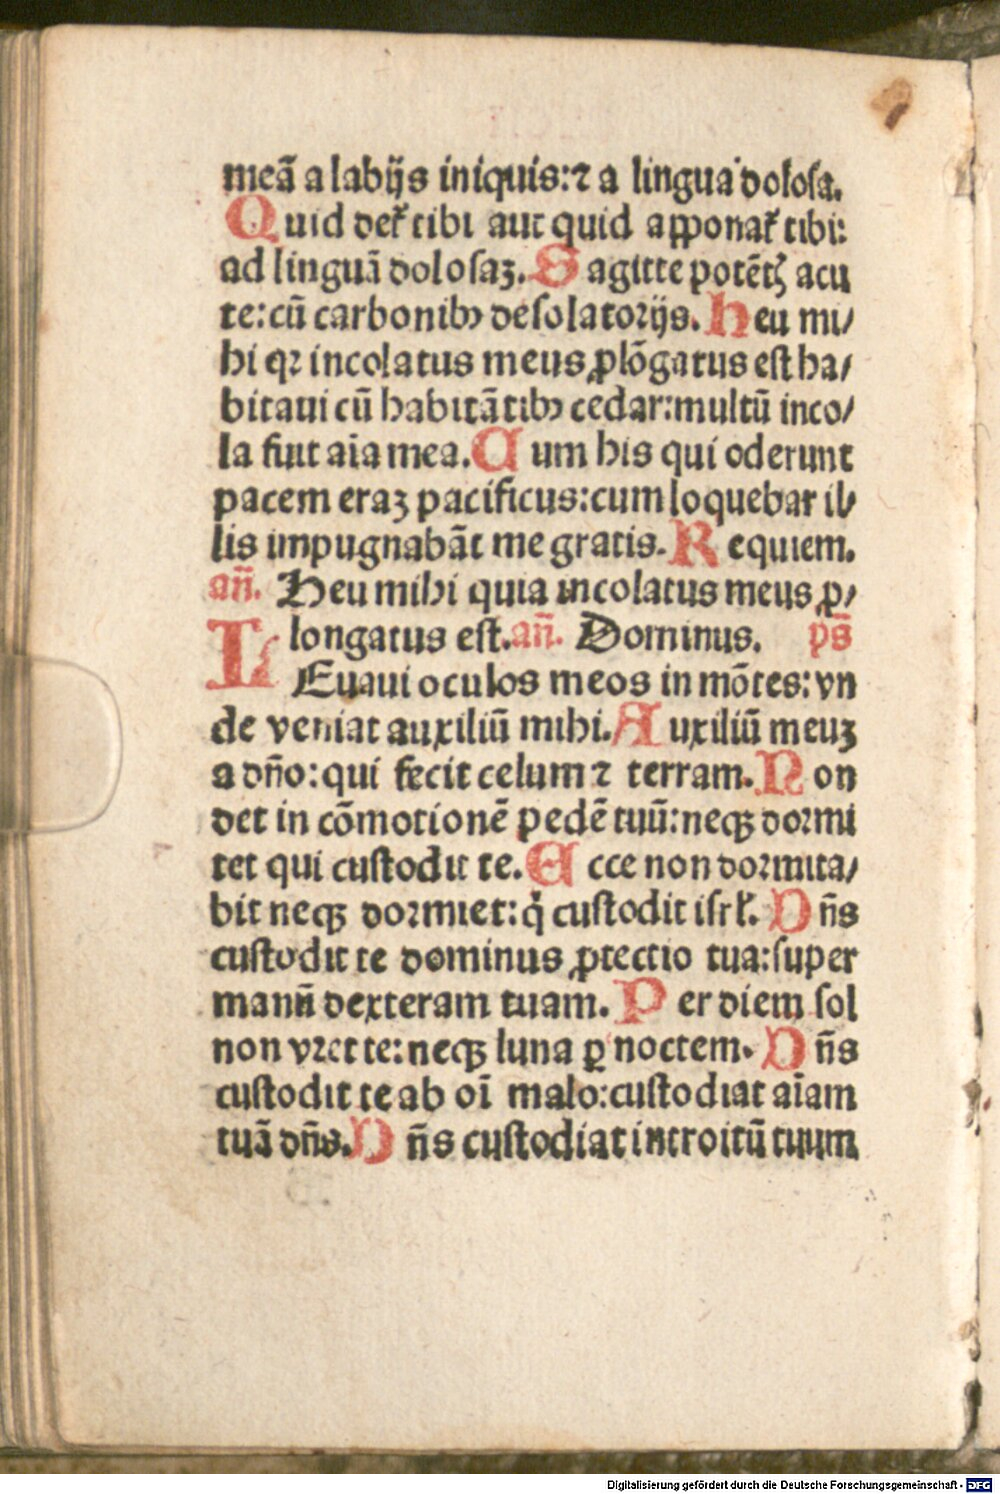 meã a labijs iniquis:⁊ a lingua dolosa.
Quid det̃ tibi aut quid apponat̃ tibi:
ad linguã dolosaꝫ. Sagitte potẽtꝭ acu
te:cũ carbonibꝰ desolatorijs. Heu mi/
hi qꝛ incolatus meus ꝓlõgatus est ha/
bitaui cũ habitãtibꝰ cedar:multũ inco/
la fuit aĩa mea. Cum his qui oderunt
pacem eraꝫ pacificus:cum loquebar il/
lis impugnabãt me gratis. Requiem.
añ. Heu mihi quia incolatus meus ꝓ/
longatus est. añ. Dominus. ps̃
LEuaui oculos meos in mõtes:vn
de veniat auxiliũ mihi. Auxiliũ meuꝫ
a dño:qui fecit celum ⁊ terram. Non
det in cõmotionẽ pedẽ tuũ:neqꝫ dormi
tet qui custodit te. Ecce non dormita/
bit neqꝫ dormiet:q̇ custodit isrl̃. Dñs
custodit te dominus ꝓtectio tua:super
manũ dexteram tuam. Per diem sol
non vret te:neqꝫ luna ꝑ noctem. Dñs
custodit te ab oĩ malo:custodiat aĩam
tuã dñs. Dñs custodiat introitũ tuum
Digitalisierung gefördert durch die Deutsche Forschungsgemeinschaft - DFG